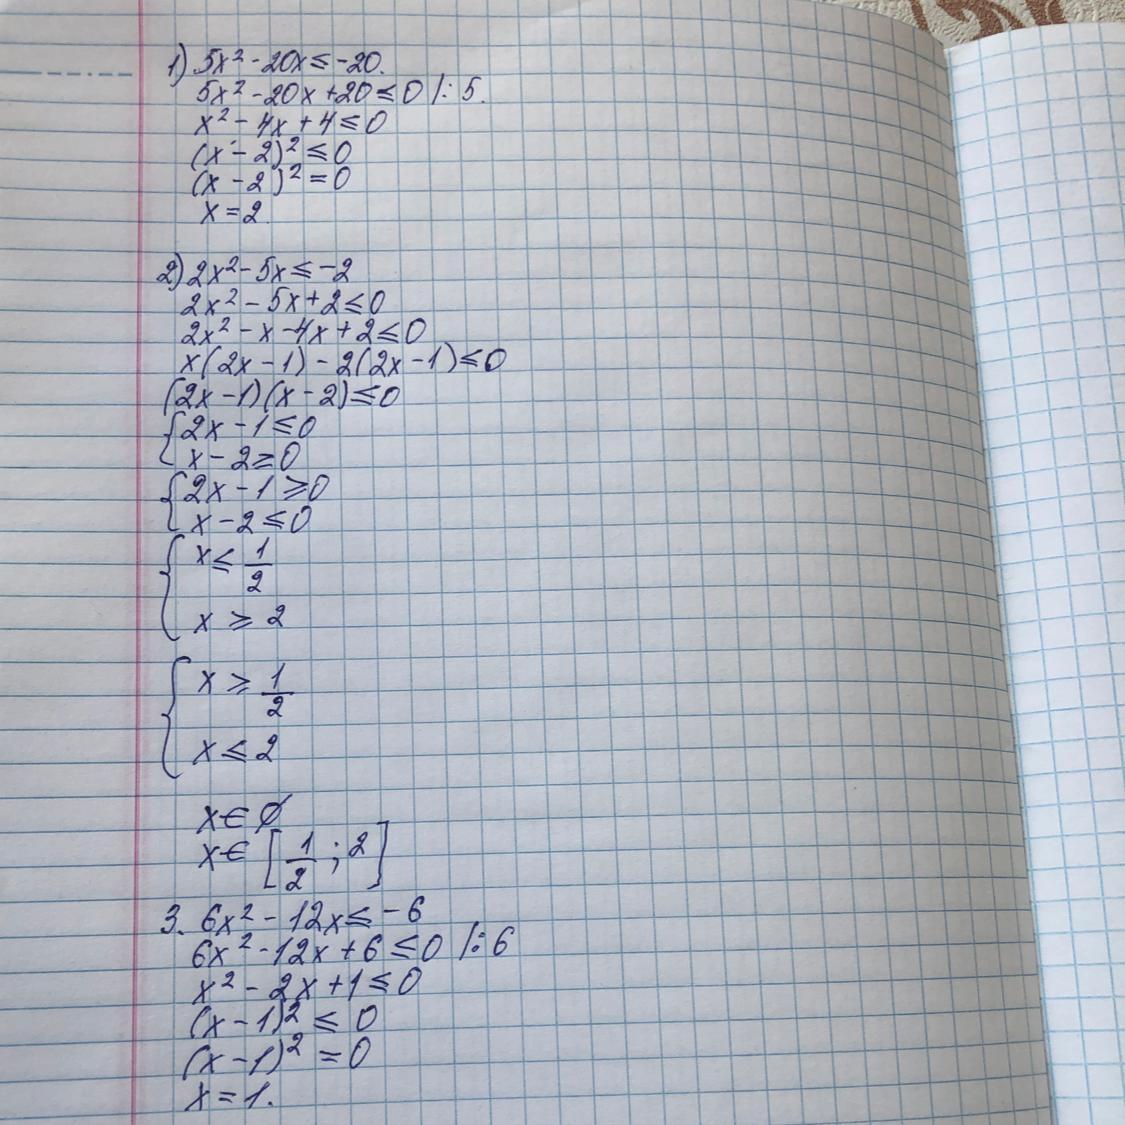 1) 5x² - 20x ≤ -20.
5x² - 20x + 20 ≤ 0 |: 5.
x² - 4x + 4 ≤ 0
(x - 2)² ≤ 0
(x - 2)² = 0
x = 2.
2) 2x² - 5x ≤ -2
2x² - 5x + 2 ≤ 0
2x² - x - 4x + 2 ≤ 0
x(2x - 1) - 2(2x - 1) ≤ 0
(2x - 1)(x - 2) ≤ 0
{ 2x - 1 ≤ 0
x - 2 ≥ 0
{ 2x - 1 ≥ 0
x - 2 ≤ 0
{ x ≤ 1/2
x ≥ 2
{ x ≥ 1/2
x ≤ 2
x ∈ ∅
x ∈ [1/2 ; 2]
3. 6x² - 12x ≤ -6
6x² - 12x + 6 ≤ 0 |: 6
x² - 2x + 1 ≤ 0
(x - 1)² ≤ 0
(x - 1)² = 0
x = 1.